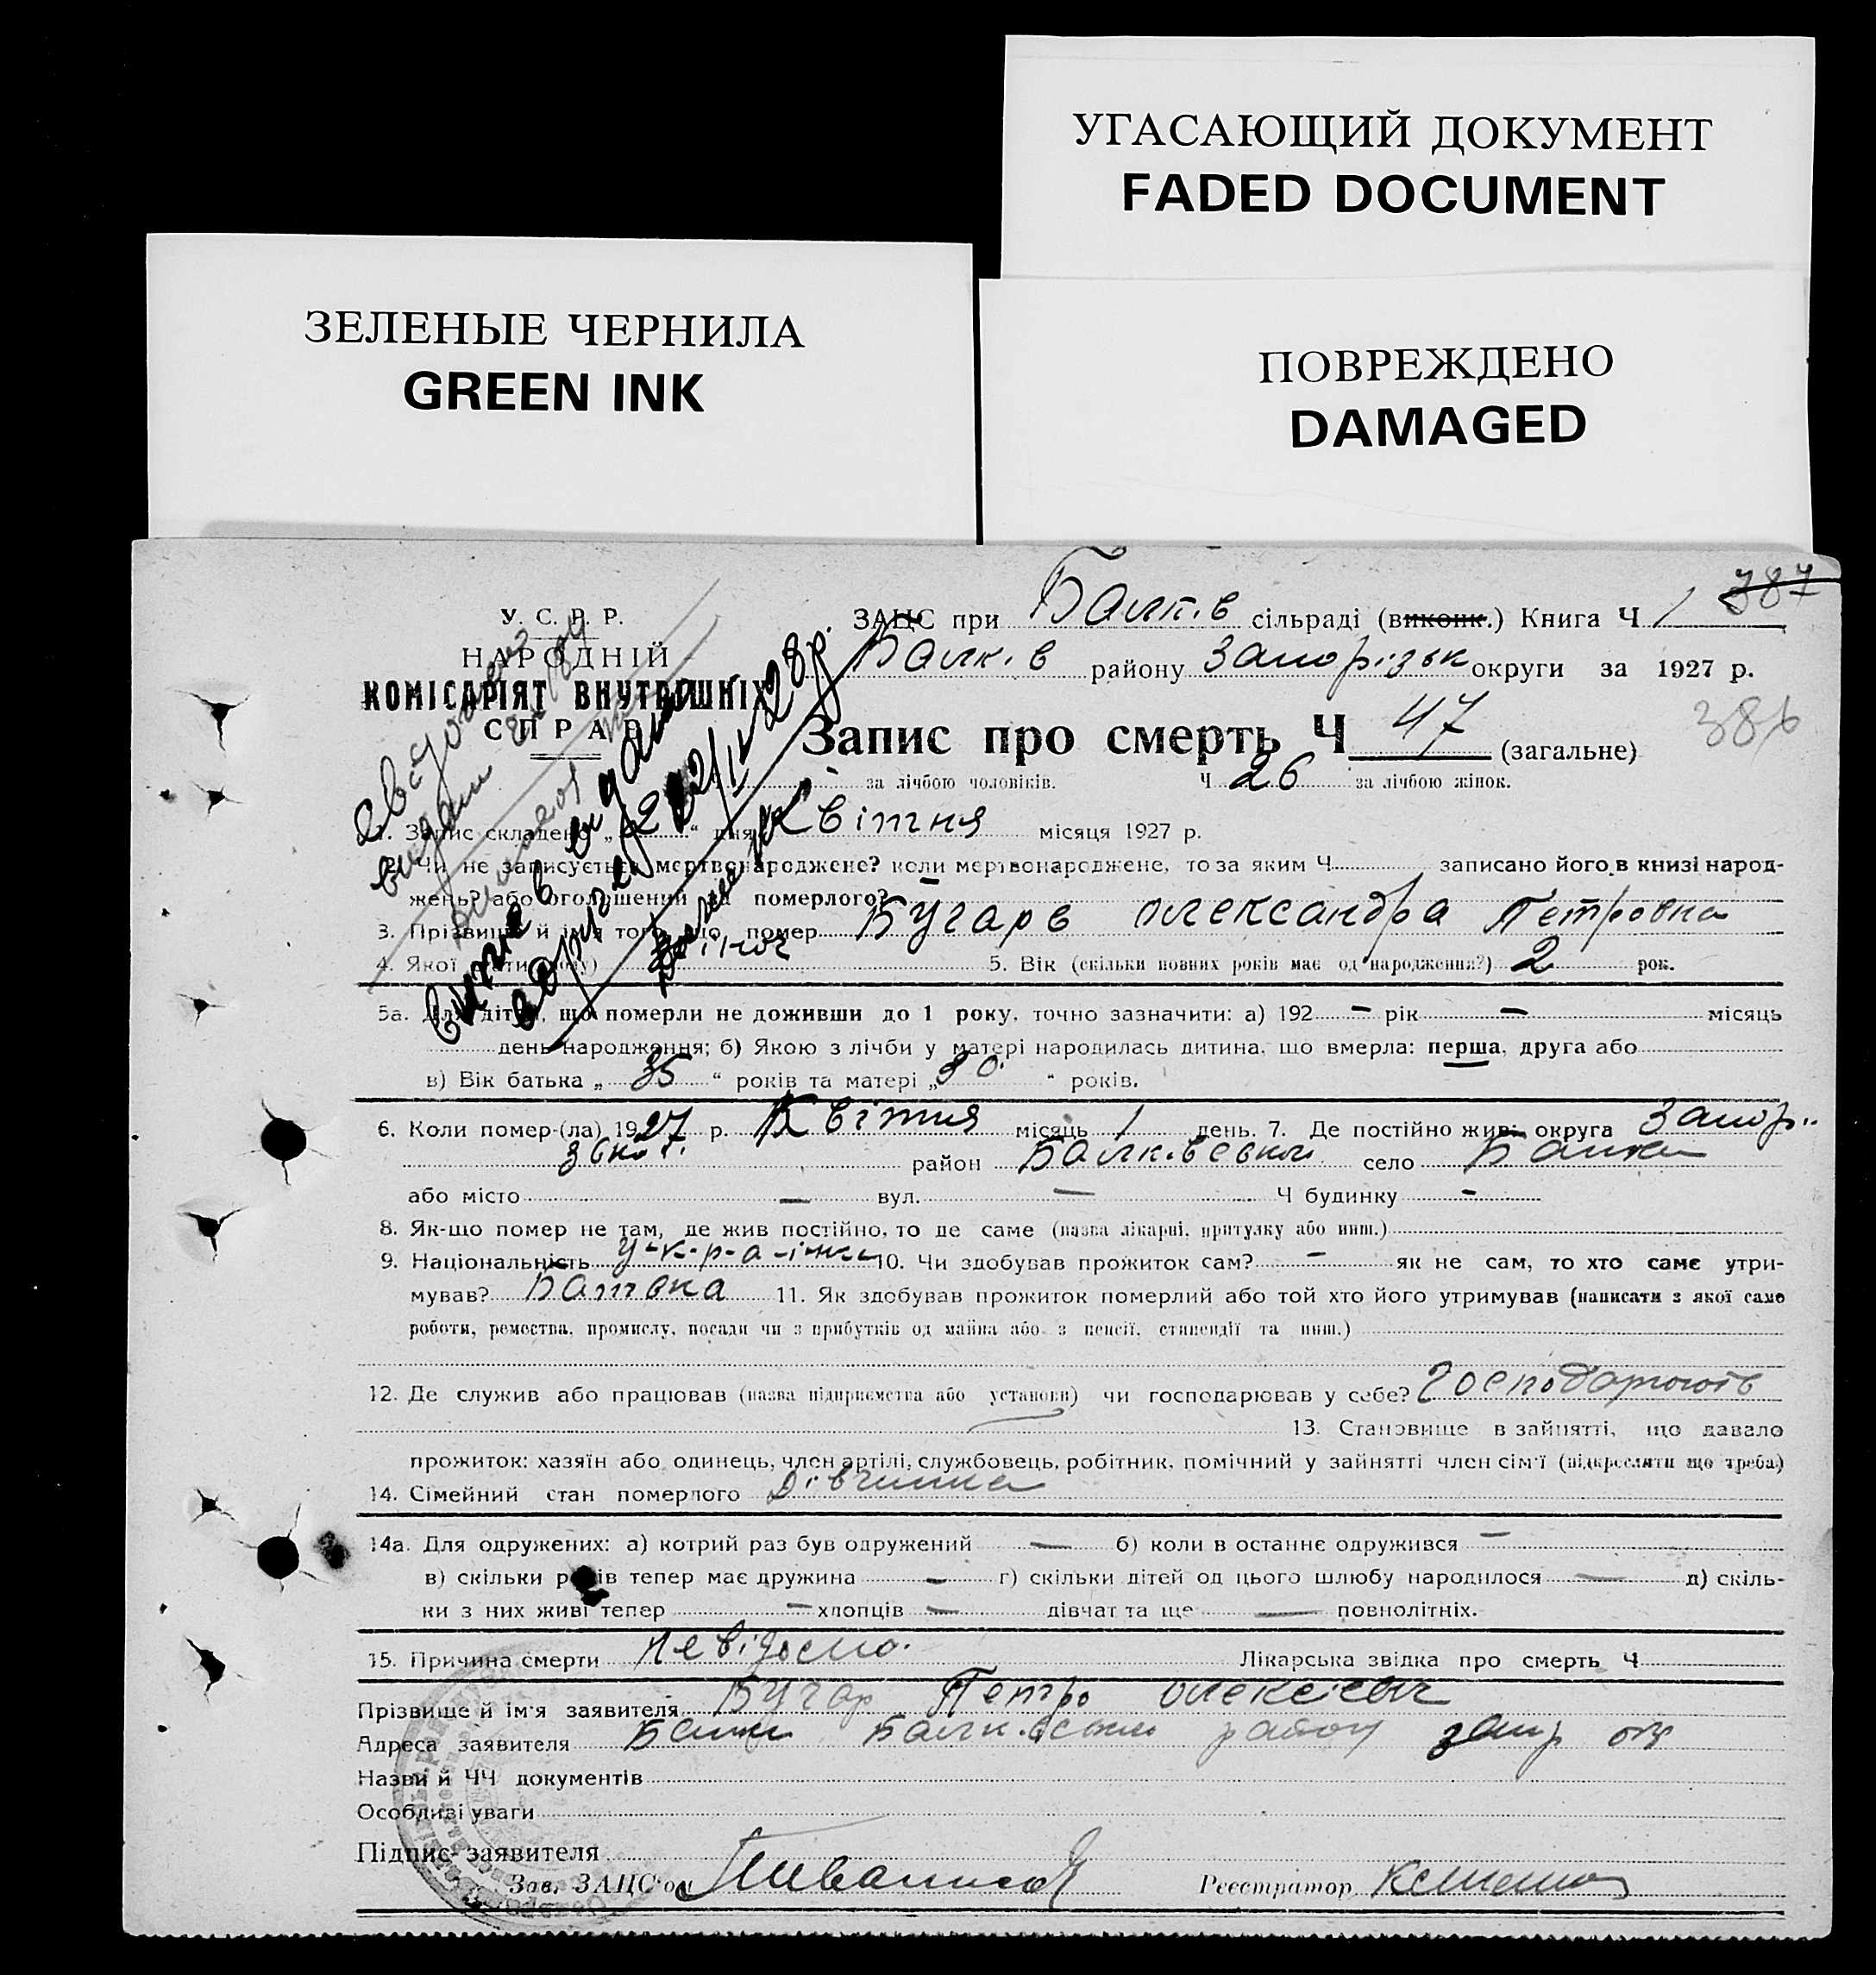 УГАСАЮЩИЙ ДОКУМЕНТ
FADED DOCUMENT
ЗЕЛЕНЫЕ ЧЕРНИЛА
GREEN INK
ПОВРЕЖДЕНО
DAMAGED
387
У. С. Р. Р.
НАРОДНІЙ
КОМІСАРІЯТ ВНУТРІШНІХ
СПРАВ
ЗАЦС при Балків сільраді (виконк.) Книга Ч 1
Балків району Запорізьк округи за 1927 р.
Запис про смерть Ч 47 (загальне)
386
за лічбою чоловіків. Ч 26 за лічбою жінок.
1. Запис складено „ 2 “ дня Квітня місяця 1927 р.
2. Чи не записується мертвонароджене? коли мертвонароджене, то за яким Ч записано його в книзі народ-
жень? або оголошений за померлого? —
3. Прізвище й ім'я того, що помер Бугарь Олександра Петровна
4. Якої статі Жіноч 5. Вік (скільки повних років має од народження?) 2 рок.
5а. Для дітей, що померли не доживши до 1 року, точно зазначити: а) 192 — рік — місяць
день народження; б) Якою з лічби у матері народилась дитина, що вмерла: перша, друга або
в) Вік батька „ 35 “ років та матері „ 30 “ років.
6. Коли помер-(ла) 1927 р. Квітня місяць 1 день. 7. Де постійно жив: округа Запор..
район Балківськ село Балки
або місто — вул. — Ч будинку -
8. Як-що помер не там, де жив постійно, то де саме (назва лікарні, притулку або инш.)
9. Національність у-к-р-а-інка 10. Чи здобував прожиток сам? — як не сам, то хто саме утри-
мував? Батька 11. Як здобував прожиток померлий або той хто його утримував (написати з якої саме
роботи, ремества, промислу, посади чи з прибутків од майна або з пенсії, стипендії та инш.)
12. Де служив або працював (назва підприємства або установи) чи господарював у себе? Господарюють
13. Становище в зайнятті, що давало
прожиток: хазяїн або одинець, член артілі, службовець, робітник, помічний у зайнятті член сім'ї (підкреслити що треба)
14. Сімейний стан померлого Дівчина
14а. Для одружених: а) котрий раз був одружений — б) коли в останнє одружився —
в) скільки років тепер має дружина - г) скільки дітей од цього шлюбу народилося — д) скіль-
ки з них живі тепер — хлопців — дівчат та ще — повнолітніх.
15. Причина смерти Невідомо. Лікарська звідка про смерть Ч
Прізвище й ім'я заявителя Бугар Петро Олексієвич
Адреса заявителя Балки Балківськ району Запр ок
Назви й ЧЧ документів
Особливі уваги
Підпис заявителя
Зав. ЗАЦС'ом Реєстратор